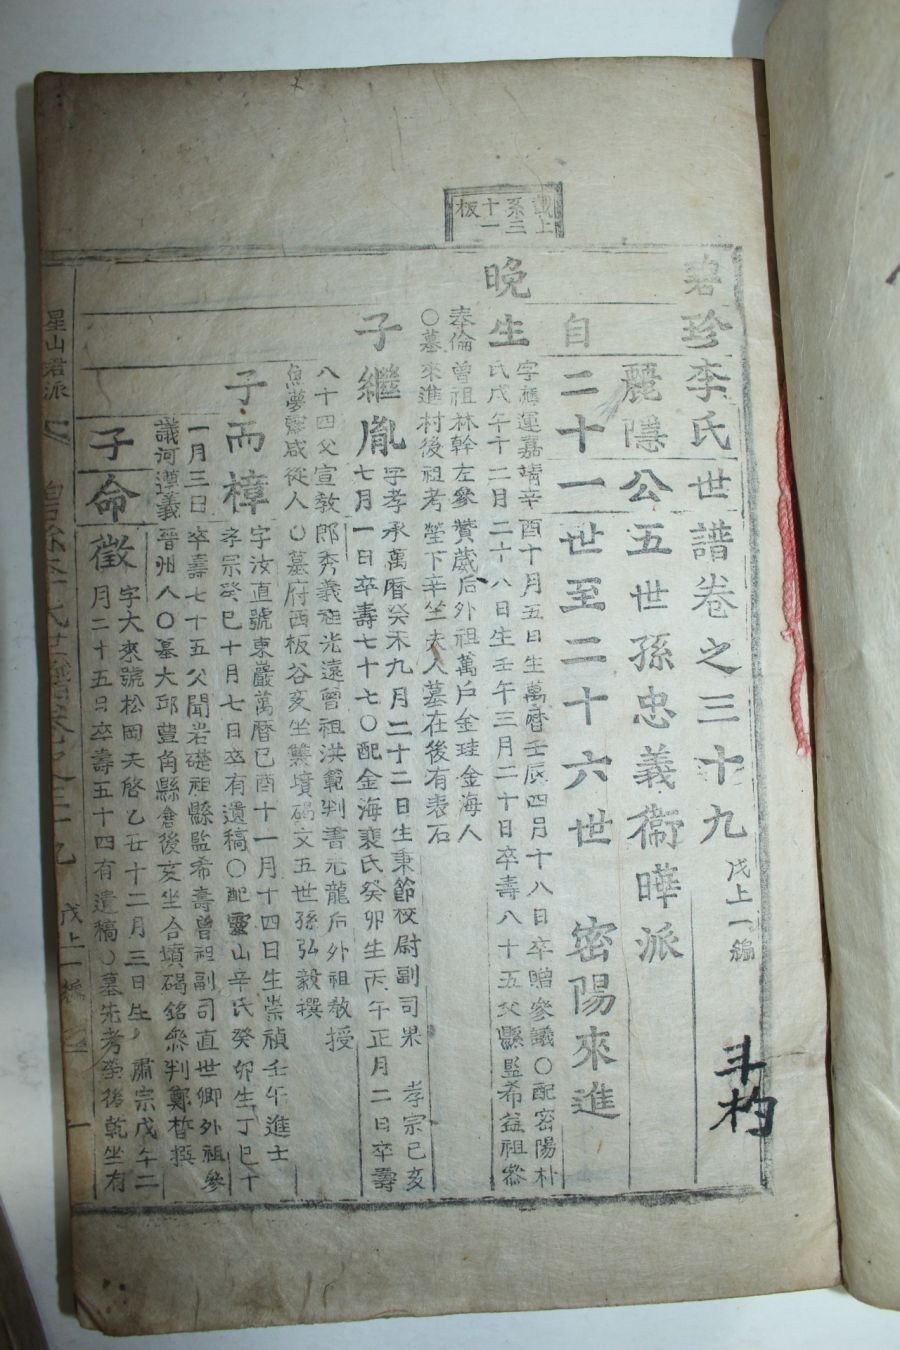 載上
系三
十一
板
碧珍李氏世譜卷之三十九 戊上一編
斗杓
麗隱公五世孫忠義衛曄派
自二十一世至二十六世 密陽來進
晩生
字應運嘉靖辛酉十月五日生萬曆壬辰四月十八日卒贈參議〇配密陽朴
氏戊午十二月二十八日生壬午三月二十日卒壽八十五父縣監希益祖參
奉倫曾祖林幹左參贊葳后外祖萬戶金珪金海人
〇墓來進村後祖考塋下辛坐夫人墓在後有表石
子繼胤
字孝承萬曆癸未九月二十二日生秉節校尉副司果 孝宗己亥
七月一日卒壽七十七〇配金海裴氏癸卯生丙午正月二日卒壽
八十四父宣教郎秀義祖光遠曾祖洪範判書元龍后外祖教授
魚夢 從人〇墓府西板谷亥坐雙墳碣文五世孫弘毅撰
子而樟
字汝直號東巖萬曆己酉十一月十四日生崇禎壬午進士
孝宗癸巳十月七日卒有遺稿〇配靈山辛氏癸卯生丁巳十
一月三日卒壽七十五父聞岩礎祖縣監希壽曾祖副司直世卿外祖參
議河 晉州人〇墓大邱豊角縣倉後亥坐合墳碣銘參判鄭 撰
子命徵
字大來號松岡天啓乙丑十二月三日生 肅宗戊午二
月二十五日卒壽五十四有遺稿〇墓先考塋後乾坐有
星山君派
碧珍李氏世譜卷之三十九 戊上一編 一